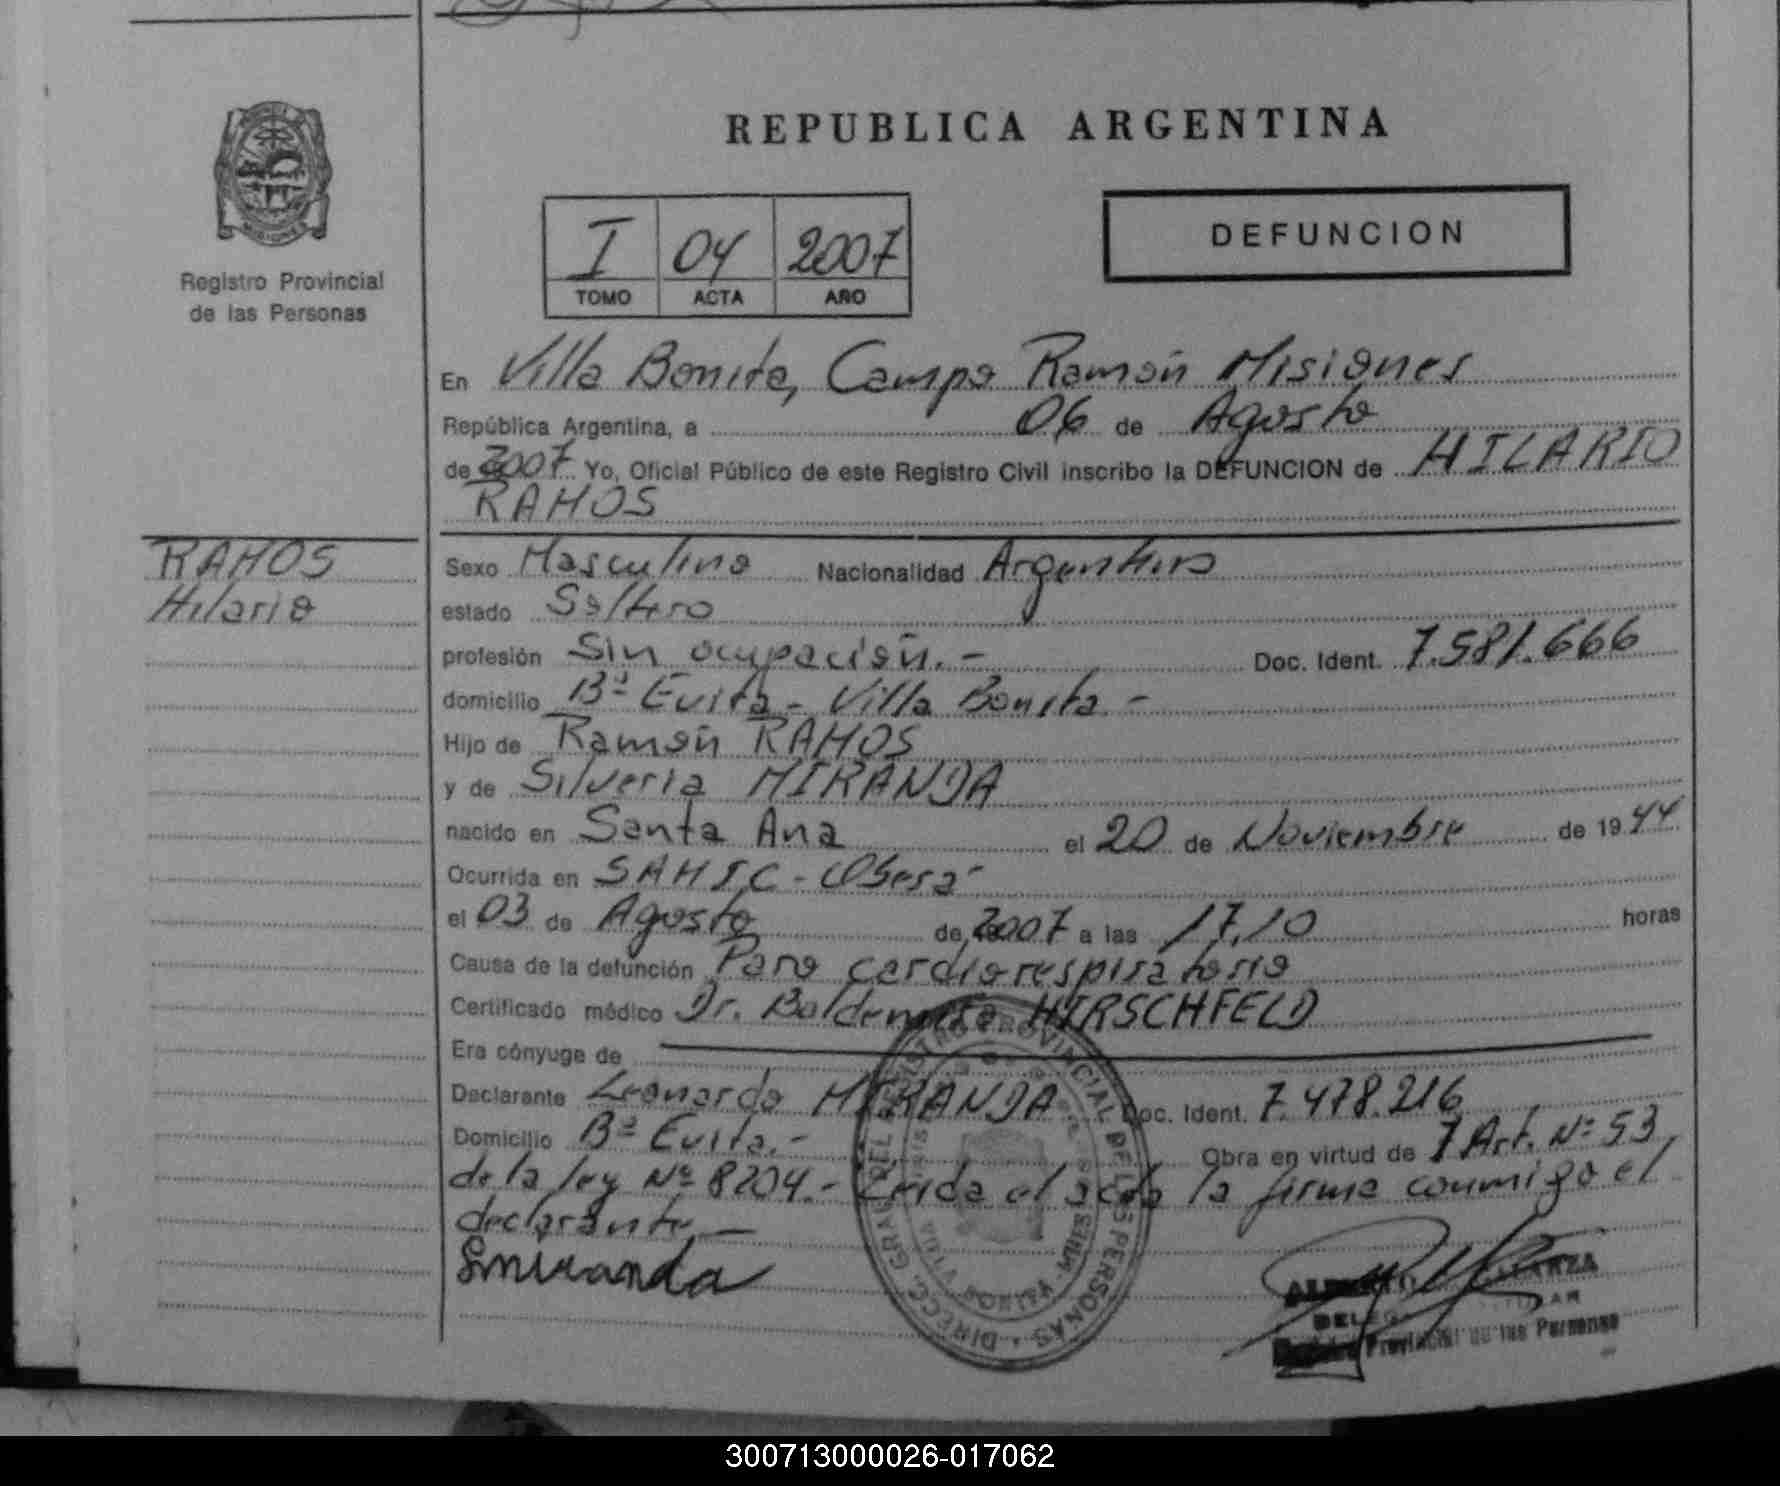 REPUBLICA ARGENTINA
DEFUNCION
I 04 2007
TOMO ACTA AÑO
Registro Provincial
de las Personas
En Villa Bonita, Campo Ramón Misiones
República Argentina, a 06 de Agosto
de 2007 Yo, Oficial Público de este Registro Civil inscribo la DEFUNCION de HILARIO
RAMOS
RAMOS
Hilario
Sexo Masculino Nacionalidad Argentino
estado Soltero
profesión Sin ocupación.- Doc. Ident. 7.581.666
domicilio Bº Evita - Villa Bonita.-
Hijo de Ramón RAMOS
y de Silveria MIRANDA
nacido en Santa Ana el 20 de Noviembre de 1944
Ocurrida en SAMIC - Oberá
el 03 de Agosto de 2007 a las 17,10 horas
Causa de la defunción Paro cardiorespiratorio
Certificado médico Dr. Baldemiro HIRSCHFELD
Era cónyuge de
Declarante Leonardo MIRANDA Doc. Ident. 7.478.216
Domicilio Bº Evita.- Obra en virtud de 7 Art. Nº 53
de la ley Nº 8204.- Leída el acta la firma conmigo el
declarante.-
Lmiranda
DIRECC. GRAL. DEL REGISTRO PROVINCIAL DE LAS PERSONAS
VILLA BONITA - MISIONES
Provincial de las Personas
300713000026-017062